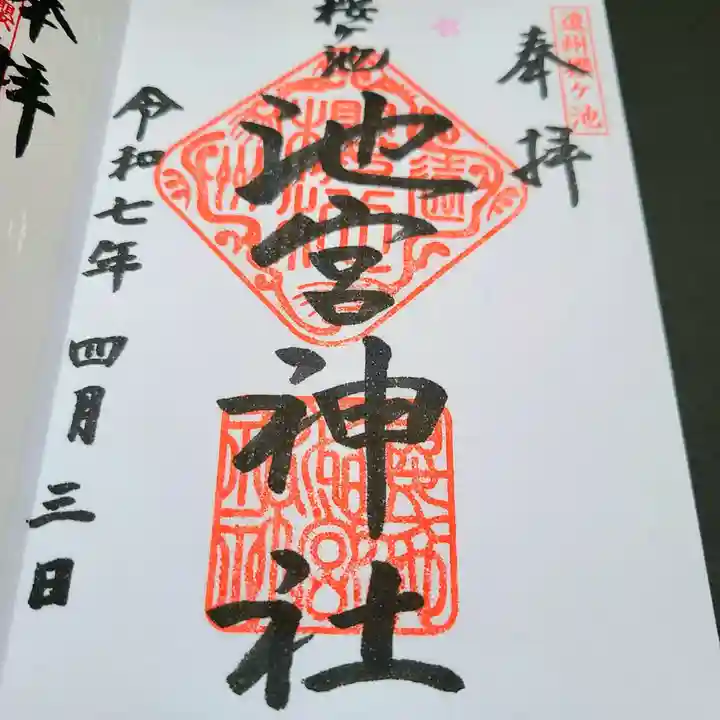 遠州櫻ヶ池
奉拝
櫻ヶ池
池宮神社
令和七年 四月 三日
本拝